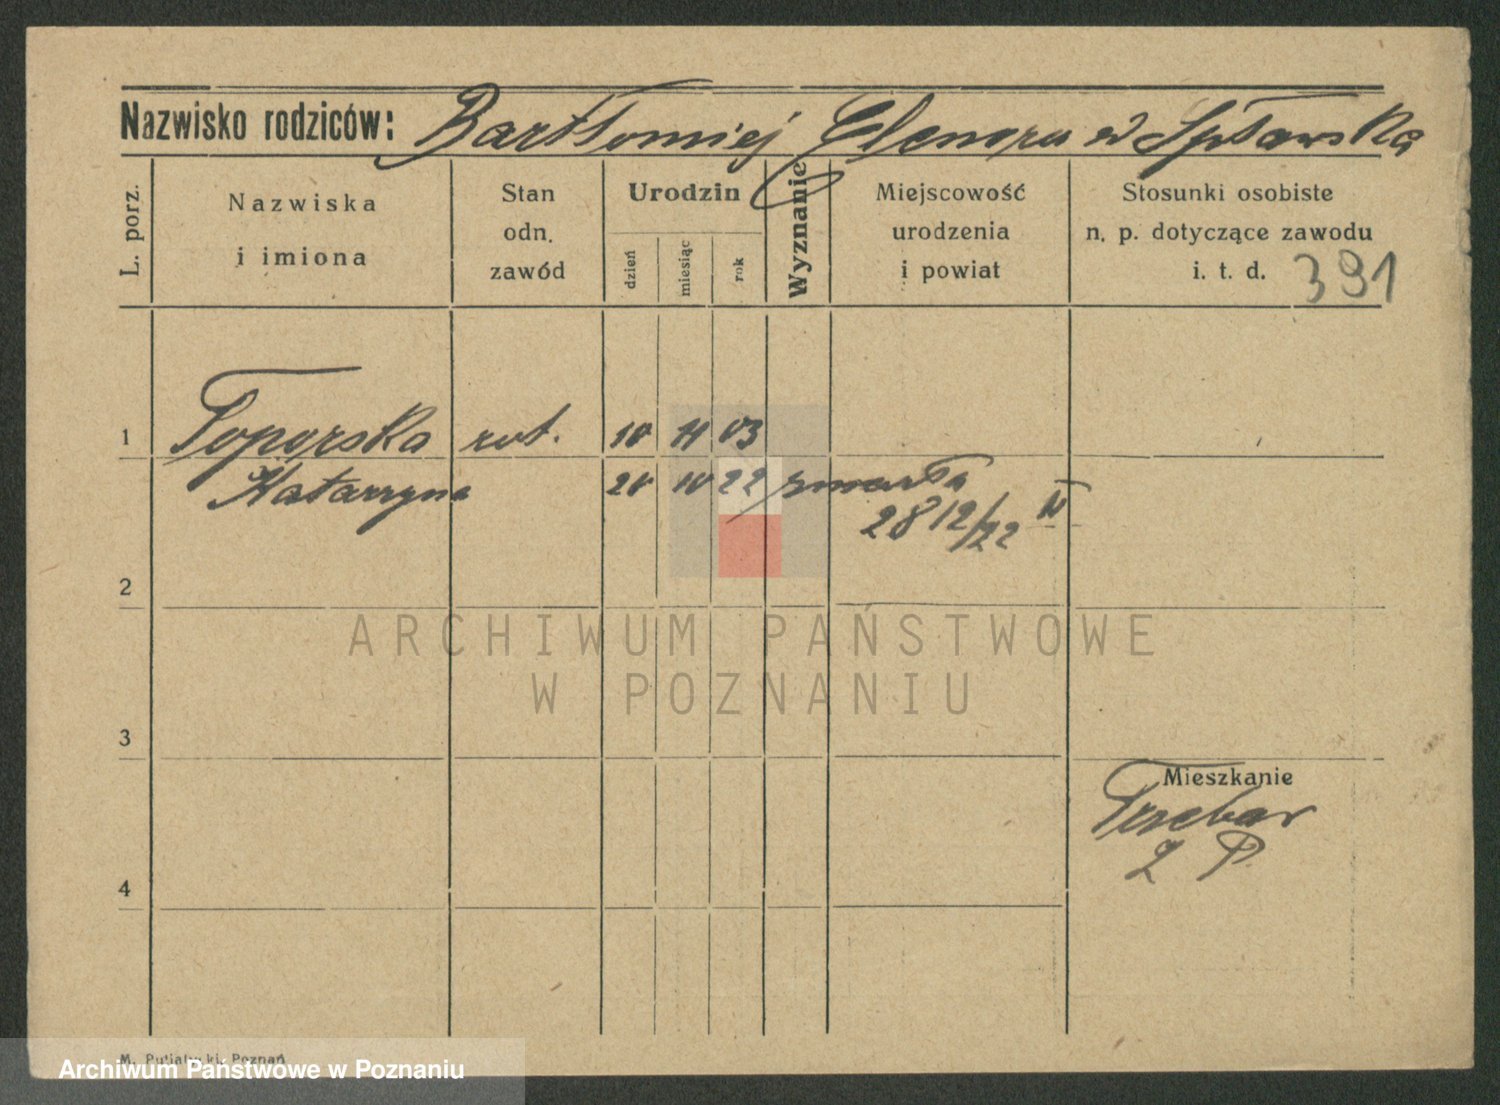 Nazwisko rodziców: Bartłomiej Elenora Spławska
L. porz.
Nazwiska
i imiona
Stan
odn.
zawód
Urodzin
dzień
miesiąc
rok
Wyznanie
Miejscowość
urodzenia
i powiat
Stosunki osobiste
n. p. dotyczące zawodu
i. t. d. 391
1 Toporska rob. 10 11 03
Katarzyna 20 10 22 zmarła
28 12/22
2
ARCHIWUM PAŃSTWOWE
W POZNANIU
3
Mieszkanie
2 P.
4
M. Putiatycki, Poznań
Archiwum Państwowe w Poznaniu